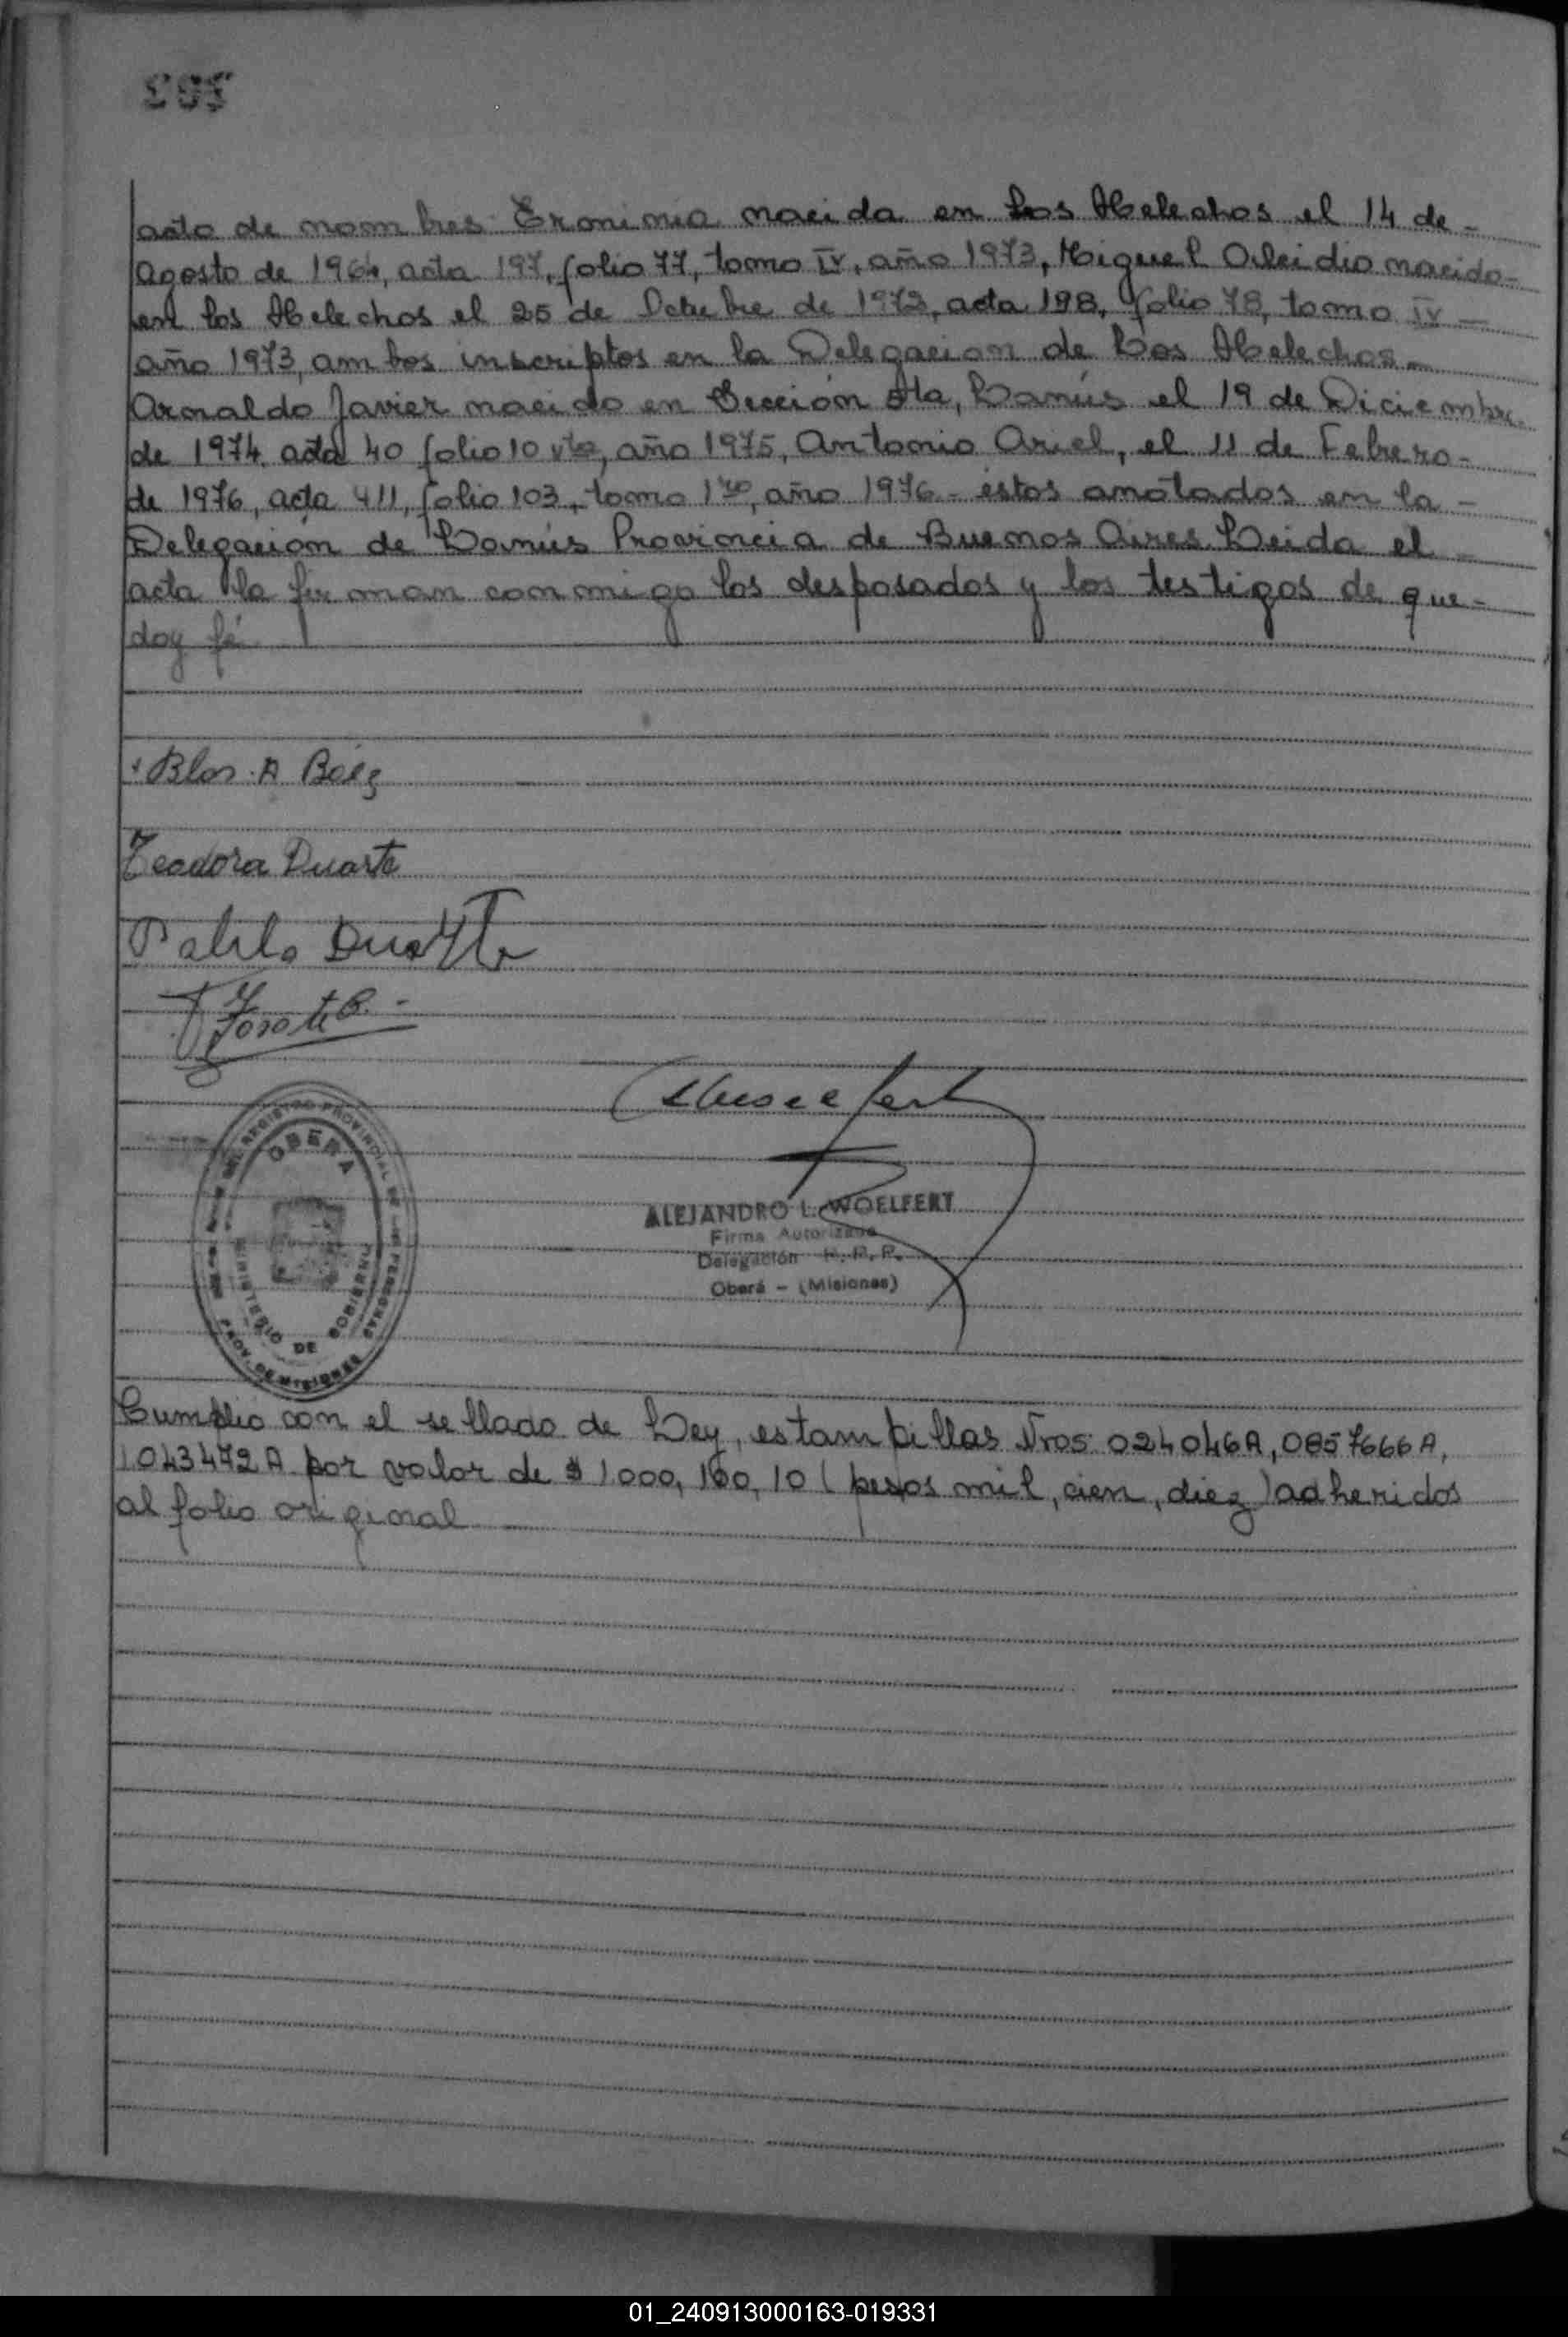 acto de nombres: Eronimia nacida en Los Helechos el 14 de -
Agosto de 1964, acta 197, folio 77, tomo IV, año 1973, Miguel Alcidio nacido-
en Los Helechos el 25 de Octubre de 1972, acta 198, folio 78, tomo IV -
año 1973, ambos inscriptos en la Delegacion de Los Helechos -
Arnaldo Javier nacido en Sección 5ta, Lanús el 19 de Diciembre
de 1974, acta 40 folio 10 vto, año 1975, Antonio Ariel, el 11 de Febrero-
de 1976, acta 411, folio 103, tomo 1ro, año 1976 - éstos anotados en la -
Delegación de Lanús Provincia de Buenos Aires. Leida el -
acta la firman conmigo los desposados y los testigos de que -
doy fé
Blas A Báez
Teodora Duarte
Pablo Duarte
ALEJANDRO L. WOELFERT
Firma Autorizada
Delegación R. P. P.
Oberá - (Misiones)
REGISTRO PROVINCIAL DE LAS PERSONAS
OBERA
MINISTERIO DE GOBIERNO
PROV. DE MISIONES
Cumplio con el sellado de Ley, estampillas Nros: 024046A, 0857666A,
1043472A por valor de $ 1.000, 100, 10 (pesos mil, cien, diez) adheridos
al folio original
01_240913000163-019331